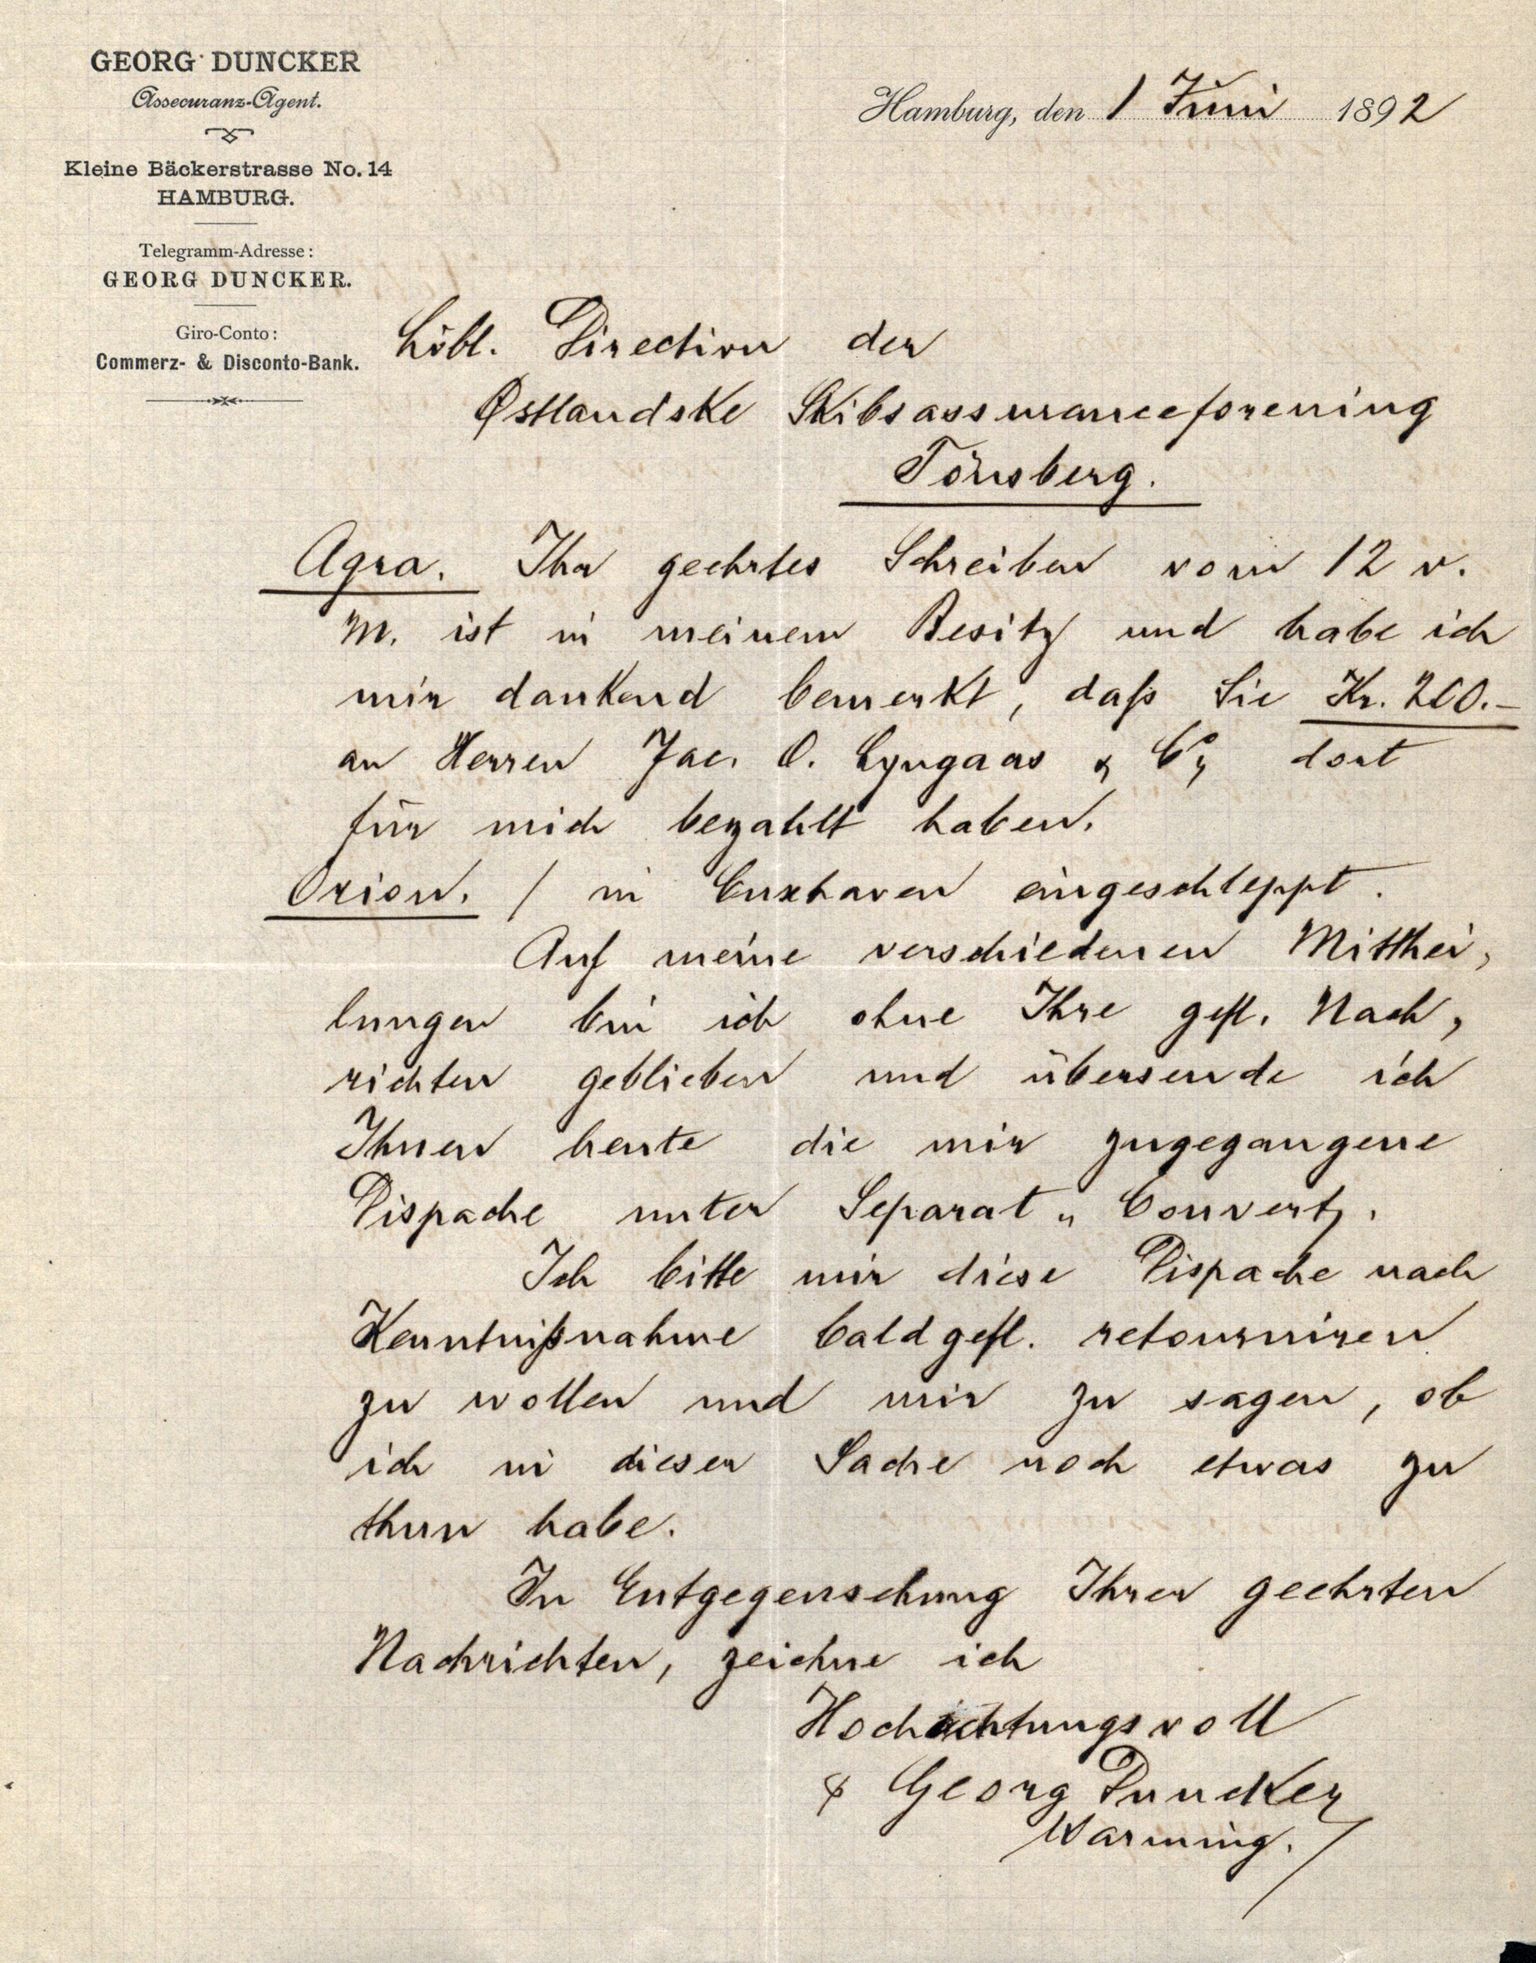 GEORG DUNCKER
Assecuranz-Agent.
Kleine Bäckerstrasse No. 14
HAMBURG.
Telegramm-Adresse:
GEORG DUNCKER.
Giro-Conto:
Commerz- & Disconto-Bank.
Hamburg, den 1 Juni 1892
Löbl. Direction der
Østlandske Skibsassuranceforening
Tönsberg.
Agra. Ihr geehrtes Schreiben vom 12 v.
M. ist in meinem Besitz und habe ich
mir dankend bemerkt, daß Sie Kr. 200.-
an Herren Jac. O. Lyngaas & Co, dort
für mich bezahlt haben.
Orion. / in Cuxhaven eingeschleppt.
Auf meine verschiedenen Mitthei,
lungen bin ich ohne Ihre gefl. Nach,
richten geblieben und übersende ich
Ihnen heute die mir zugegangene
Dispache unter Separat„Couvert.
Ich bitte mir diese Dispache nach
Kenntnißnahme baldgefl. retourniren
zu wollen und mir zu sagen, ob
ich in dieser Sache noch etwas zu
thun habe.
In Entgegensehung Ihrer geehrten
Nachrichten, zeichne ich
Hochachtungsvoll
Georg Duncker
Warming.